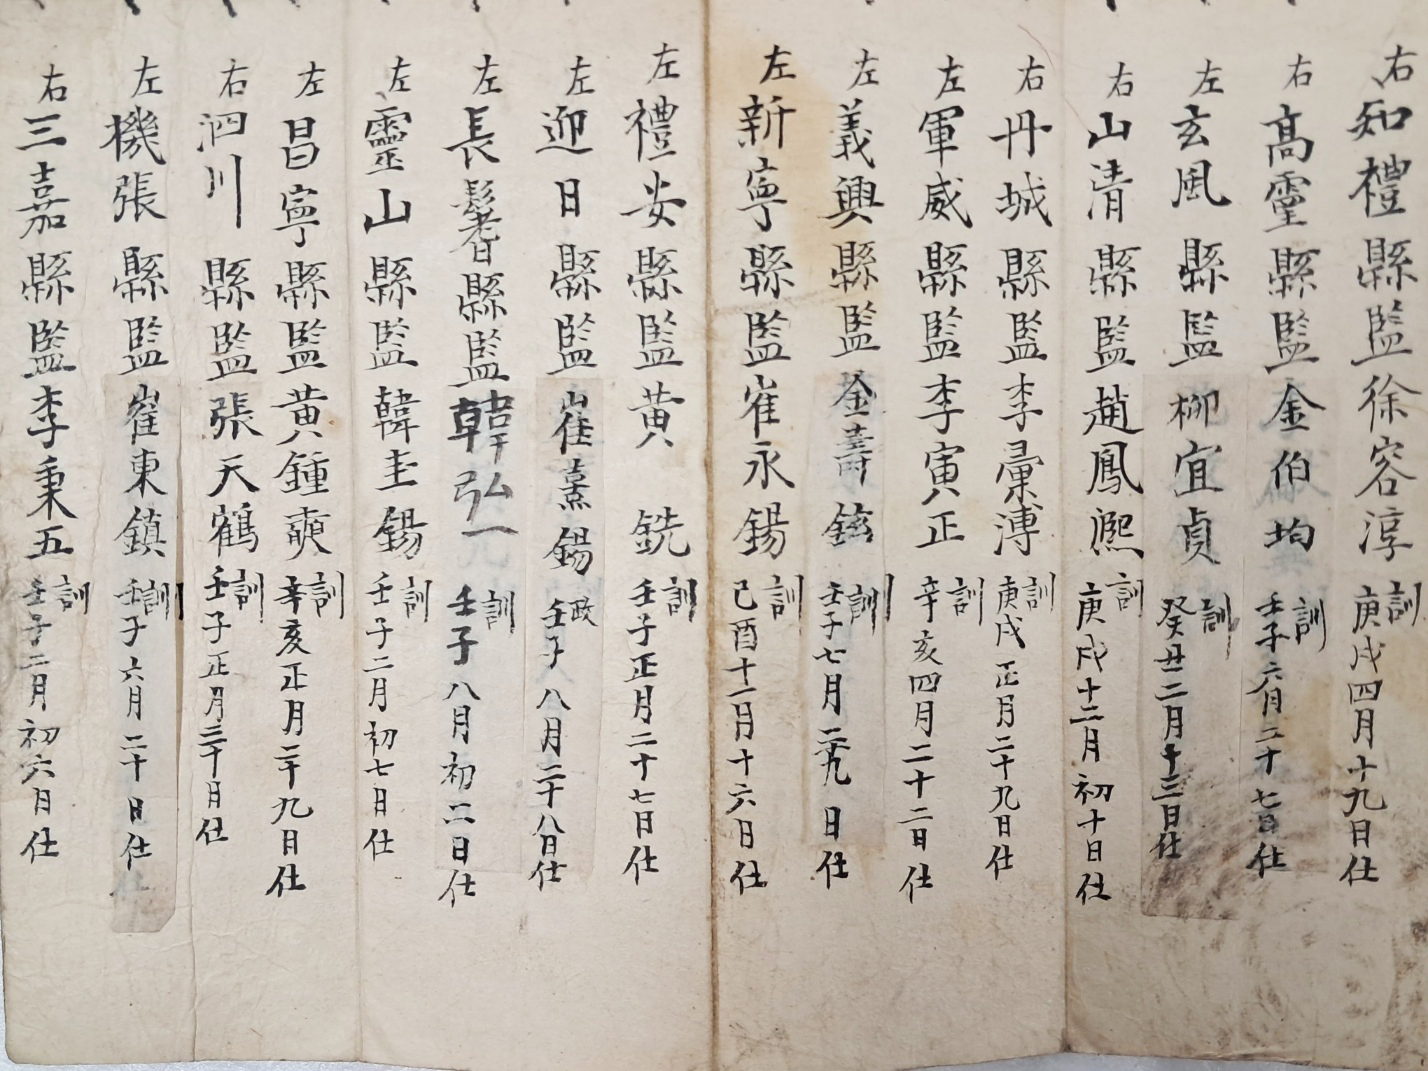 右知禮縣監徐容淳訓庚戌四月十九日仕
右高靈縣監金伯均訓壬子六月二十七日仕
左玄風縣監柳宜貞訓癸丑二月十三日仕
右山清縣監趙鳳熙訓庚戌十二月初十日仕
右丹城縣監李彙溥訓庚戌正月二十九日仕
左軍威縣監李寅正訓辛亥四月二十二日仕
左義興縣監金壽鉉訓壬子七月二十九日仕
左新寧縣監崔永錫訓己酉十一月十六日仕
左禮安縣監黃銑訓壬子正月二十七日仕
左迎日縣監崔熹錫政壬子八月二十八日仕
左長鬐縣監韓弘一訓壬子八月初二日仕
左靈山縣監韓圭錫訓壬子二月初七日仕
左昌寧縣監黃鍾奭訓辛亥正月二十九日仕
右泗川縣監張天鶴訓壬子正月三十日仕
左機張縣監崔東鎮訓壬子六月二十日仕
右三嘉縣監李秉五訓壬子二月初六日仕